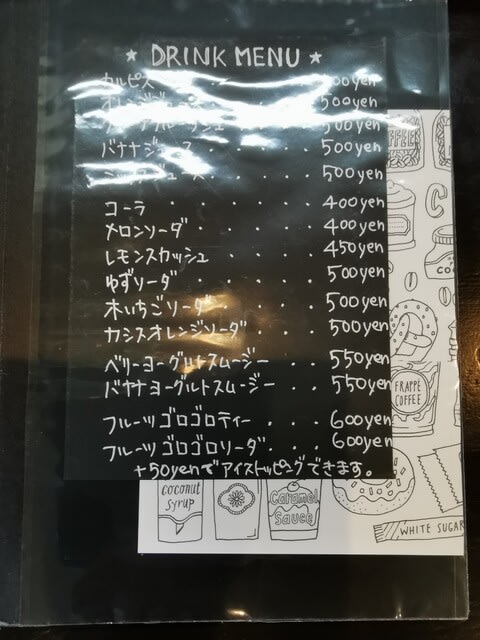 ★ DRINK MENU ★
カルピス
オレンジジュース 500yen
500yen
バナナジュース 500yen
ミックスジュース 500yen
コーラ 400yen
メロンソーダ 400yen
レモンスカッシュ 450yen
ゆずソーダ 500yen
木いちごソーダ 500yen
カシスオレンジソーダ 500yen
ベリーヨーグルトスムージー 550yen
バナナヨーグルトスムージー 550yen
フルーツゴロゴロティー 600yen
フルーツゴロゴロソーダ 600yen
+50yenでアイストッピングできます。
FRAPPE
COFFEE
coconut
syrup
Caramel
Sauce
WHITE SUGAR